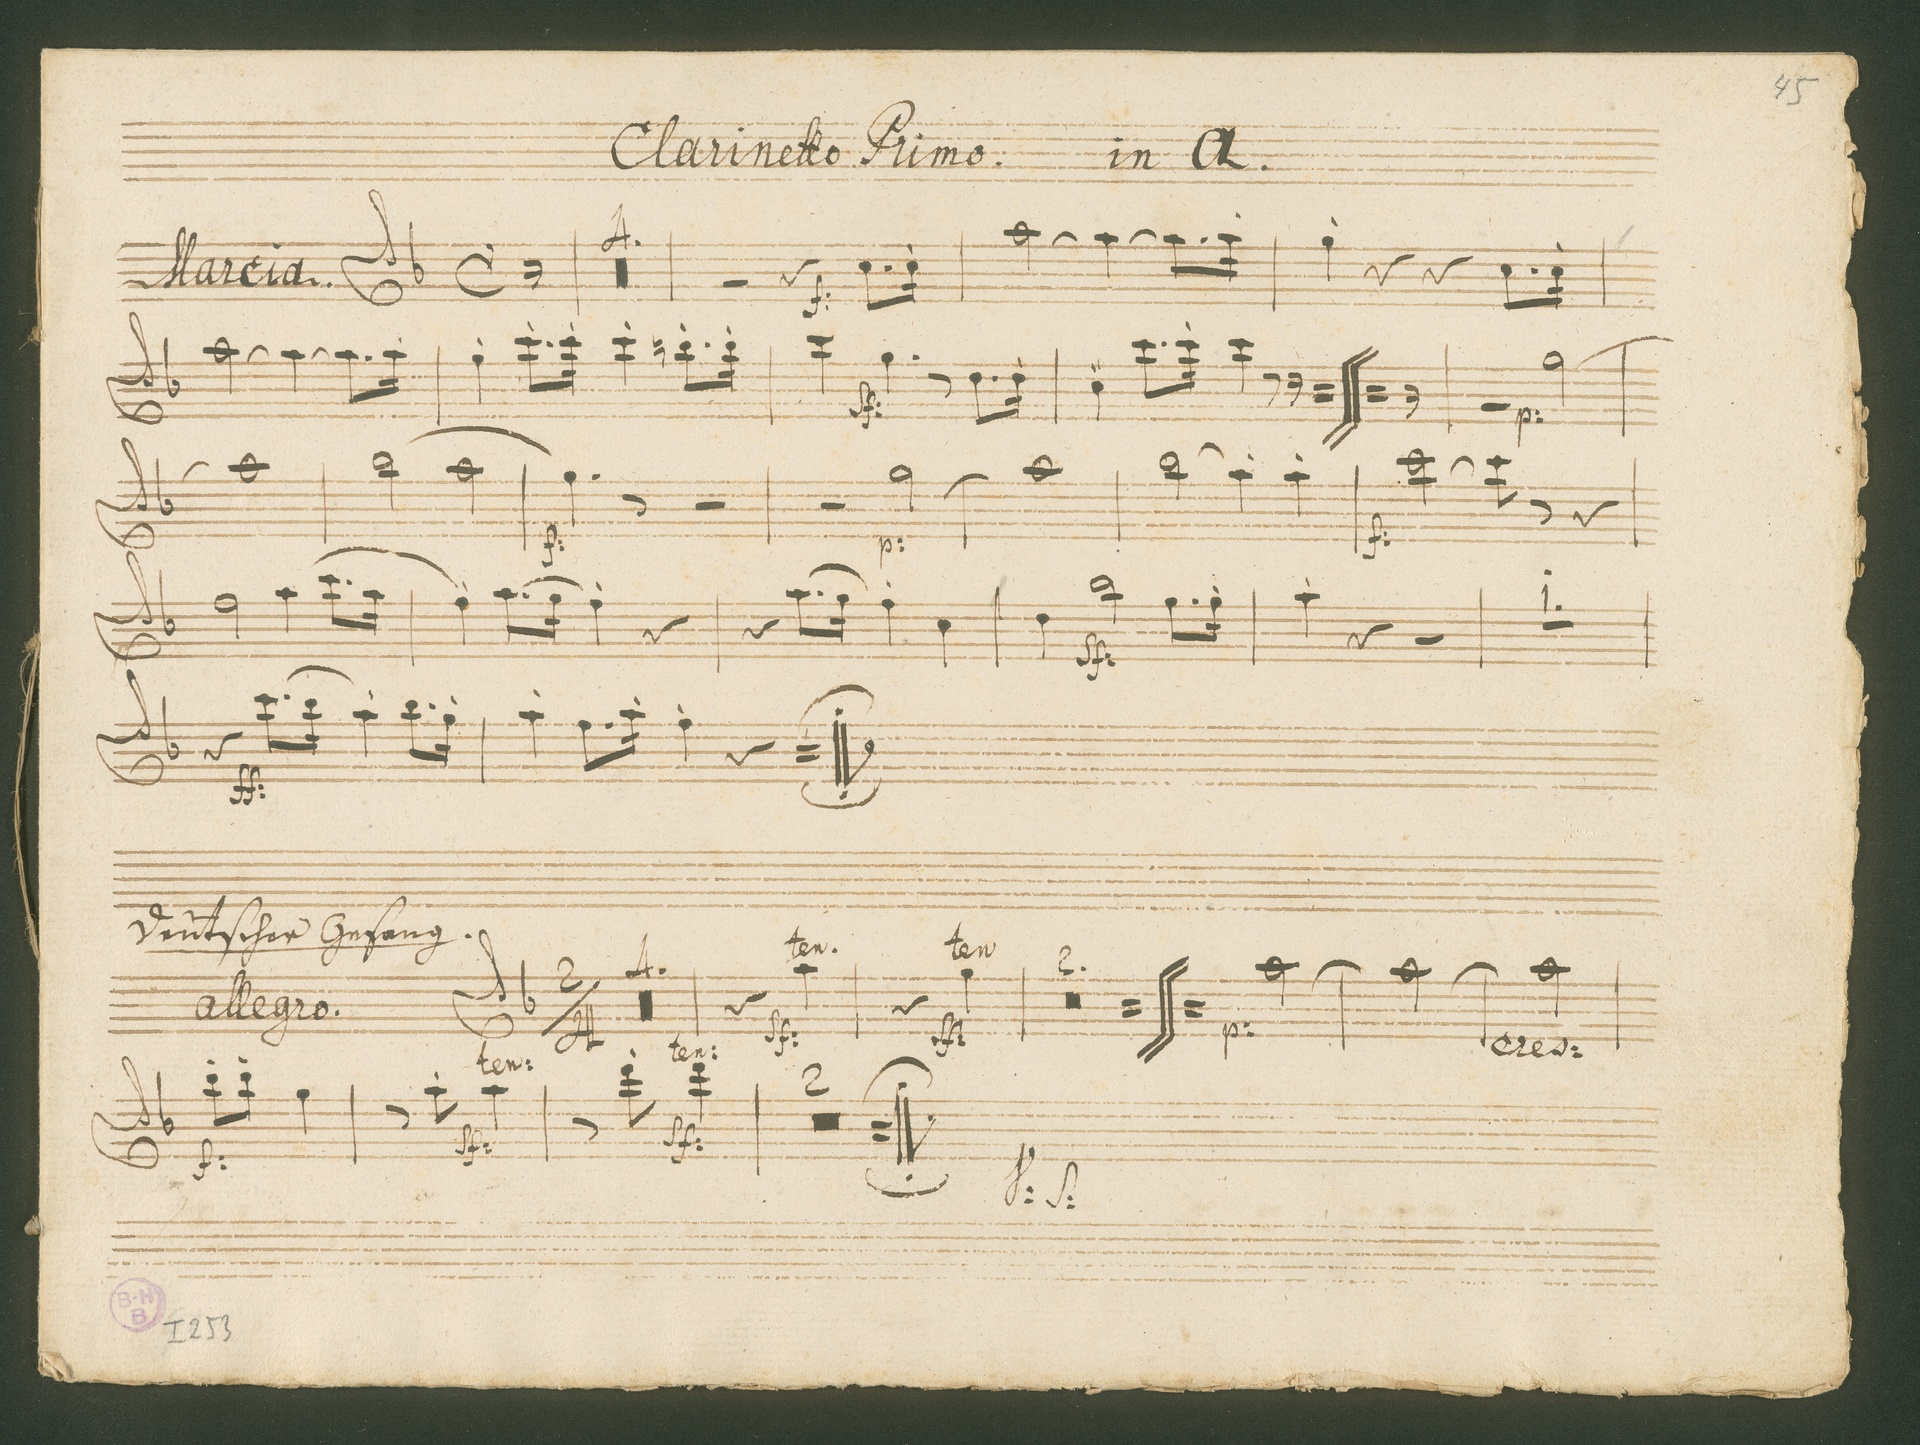 45
Clarinetto Primo. in A.
Marcia.
4.
f:
sf:
p:
f: p: f:
sf: 1.
ff:
Deutscher Gesang.
allegro. 2/4 4. ten. ten 2.
sf: sf: p: cres:
ten: ten: 2
f: sf: sf:
V: S:
B·H
B
I 253